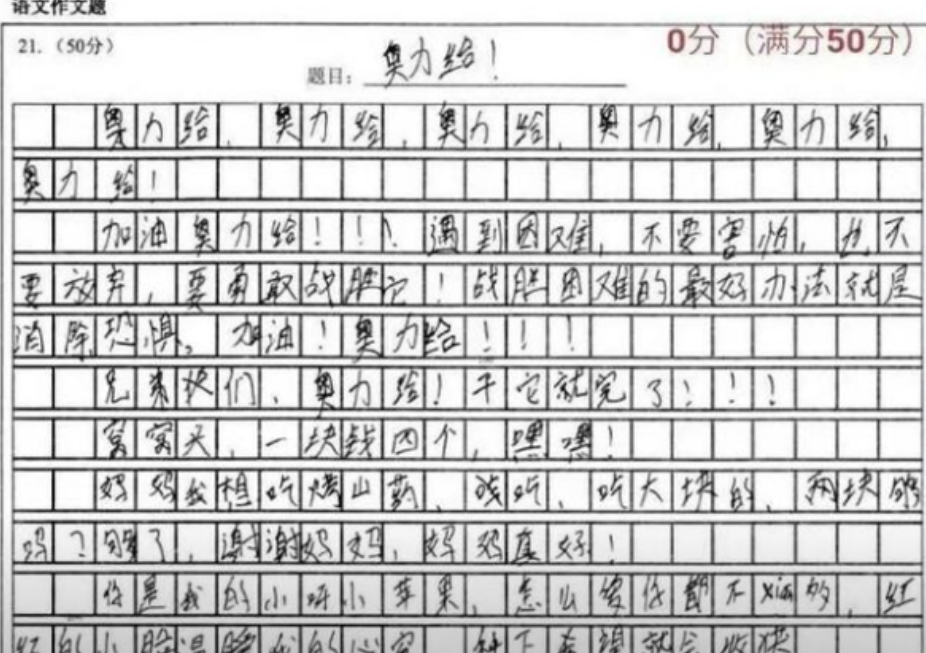 语文作文题
21.（50分）
0分（满分50分）
题目：奥力给！
奥力给，奥力给，奥力给，奥力给，奥力给，
奥力给！
加油奥力给！！！遇到困难，不要害怕，也不
要放弃，要勇敢战胜它！战胜困难的最好办法就是
消除恐惧，加油！奥力给！！！
兄弟们，奥力给！干它就完了！！！
窝窝头，一块钱四个，嘿嘿！
妈妈我想吃烤山药，吃大块的，两块够
吗？够了，谢谢妈妈，妈妈真好！
你是我的小呀小苹果，怎么爱你都不xian的，红
红的小脸温暖我的心窝